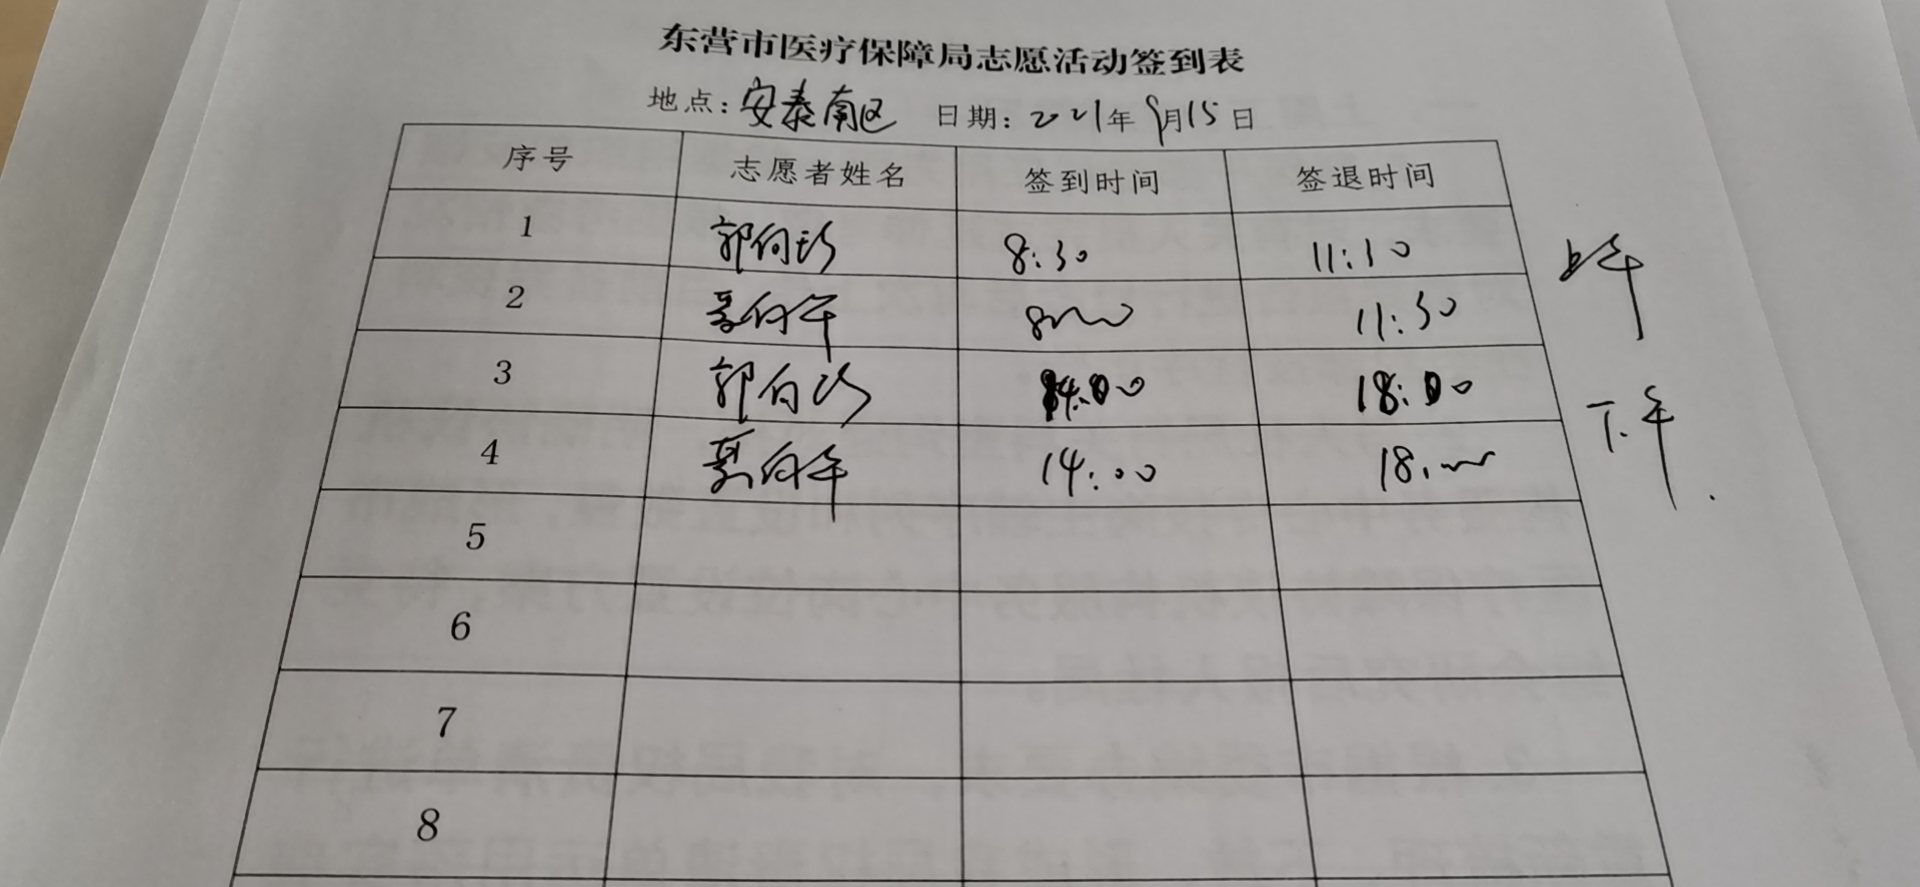 东营市医疗保障局志愿活动签到表
地点：安泰南区 日期：2021年9月15日
序号 志愿者姓名 签到时间 签退时间
1 郭向 8:30 11:30 上午
2 向午 8 11:30
3 郭向 14:00 18:00 下午
4 向午 14:00 18:
5
6
7
8